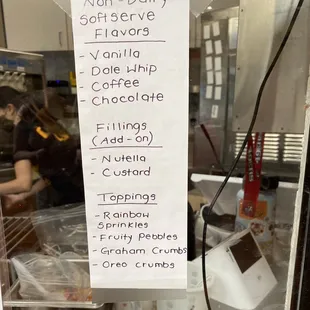 Non-Dairy
Softserve
Flavors
- Vanilla
- Dole Whip
- Coffee
- Chocolate
Fillings
(Add-on)
- Nutella
- Custard
Toppings
- Rainbow
Sprinkles
- Fruity Pebbles
- Graham Crumbs
- Oreo crumbs